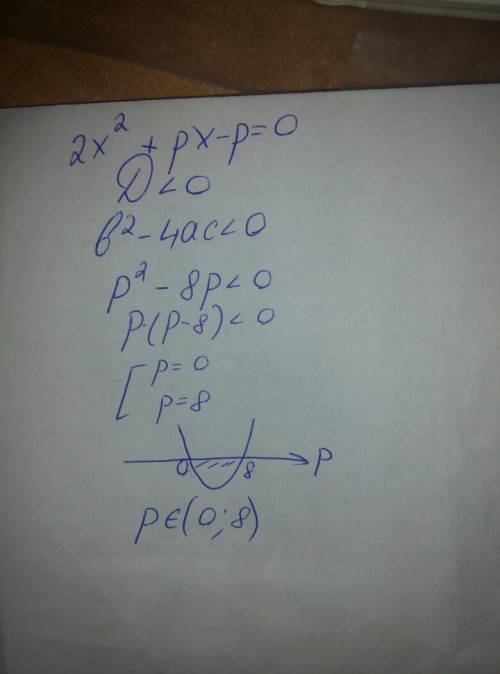 2x² + px - p = 0
D < 0
b² - 4ac < 0
p² - 8p < 0
p·(p-8) < 0
[ p = 0
p = 8
0 8 p
p∈(0;8)